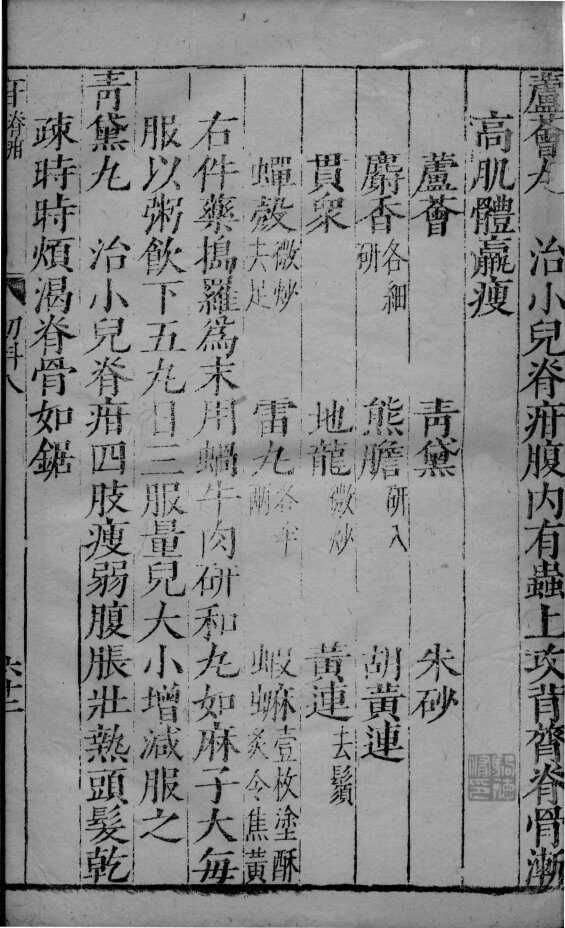 蘆薈丸　治小兒脊疳腹內有蟲上攻背膂脊骨漸
高肌體羸瘦
蘆薈　青黛　朱砂
麝香各細研　熊膽研入　胡黃連
貫衆　地龍微炒　黃連去鬚
蟬殼微炒去足　雷丸各半兩　蝦蟆壹枚塗酥炙令焦黃
右件藥搗羅爲末用蝸牛肉研和丸如麻子大每
服以粥飲下五丸日三服量兒大小增減服之
青黛丸　治小兒脊疳四肢瘦弱腹脹壯熱頭髮乾
疎時時煩渴脊骨如鋸
幼科八
六十二